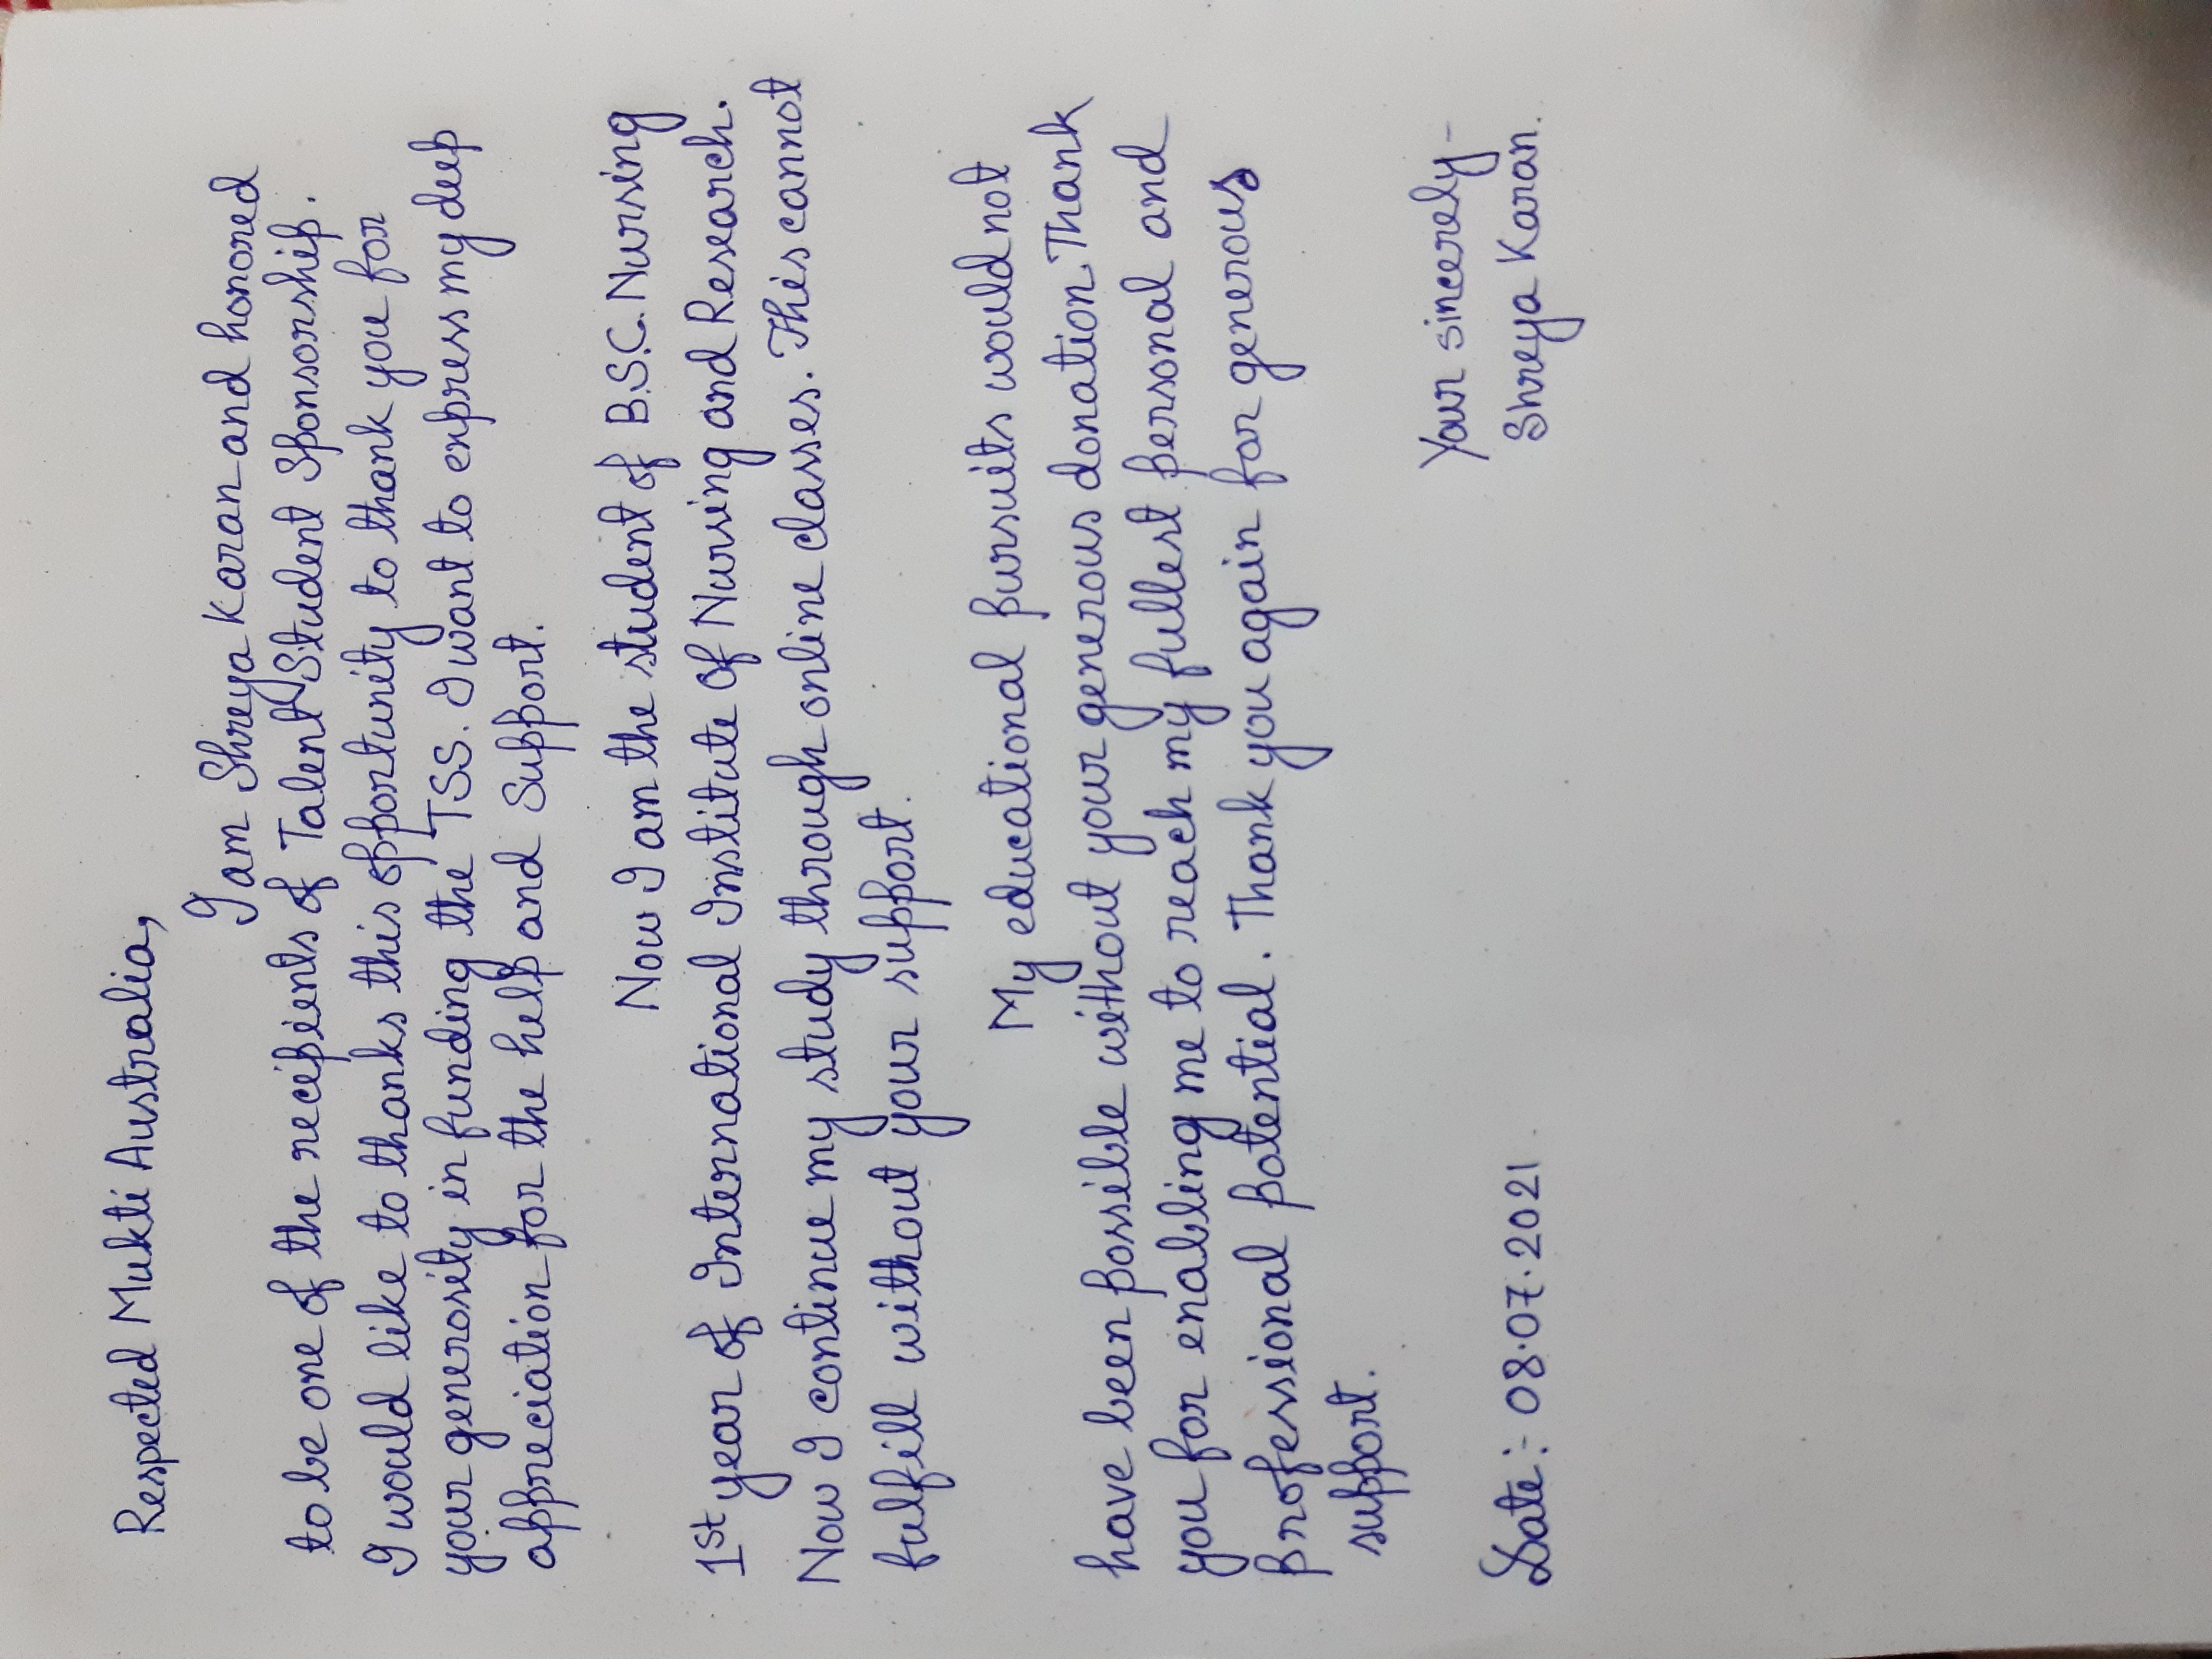 Respected Mukti Australia,
I am Shreya Karan and honored
to be one of the recipients of Talent Student Sponsorship.
I would like to thanks this opportunity to thank you for
your generosity in funding the TSS. I want to express my deep
appreciation for the help and support.
Now I am the student of B.S.C. Nursing
1st year of International Institute of Nursing and Research.
Now I continue my study through online classes. This cannot
fulfill without your support.
My educational pursuits would not
have been possible without your generous donation. Thank
you for enabling me to reach my fullest personal and
professional potential. Thank you again for generous
support.
Your sincerely -
Date:- 08.07.2021. Shreya Karan.